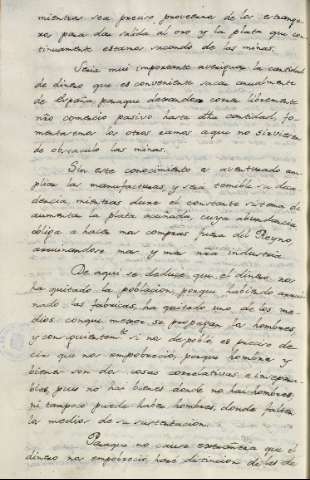 mientras sea preciso proveerse de los extrange-
ros para dar salida al oro y la plata que con-
tinuamente estamos sacando de las minas.
Seria mui importante averiguar la cantidad
de dinero que es conveniente sacar anualmente
de España, paraque dexando correr libremente
nro comercio pasivo hasta dha cantidad, fo-
mentasemos los otros ramos a que no sirviesen
de obstaculo las minas.
Sin este conocimiento es aventurado am-
pliar las manufacturas, y será temible su deca-
dencia, mientras dure el constante sistema de
aumentar la plata acuñada, cuya abundancia
obliga a hacer mas compras fuera del Reyno,
arruinandose mas y mas nra industria.
De aqui se deduce, que el dinero nos
ha quitado la poblacion, porque habiendo arrui-
nado las fabricas, ha quitado uno de los me-
dios, conque mejor se propagan los hombres,
y consiguientemte si nos despobló, es preciso de-
cir que nos empobreció; porque hombres y
bienes son dos cosas correlativas e insepara-
bles, pues no hai bienes donde no hai hombres,
ni tampoco puede haber hombres, donde faltan
los medios de su sustentacion.
Paraque no cause estrañeza que el
dinero nos empobreció, haré distincion de los de